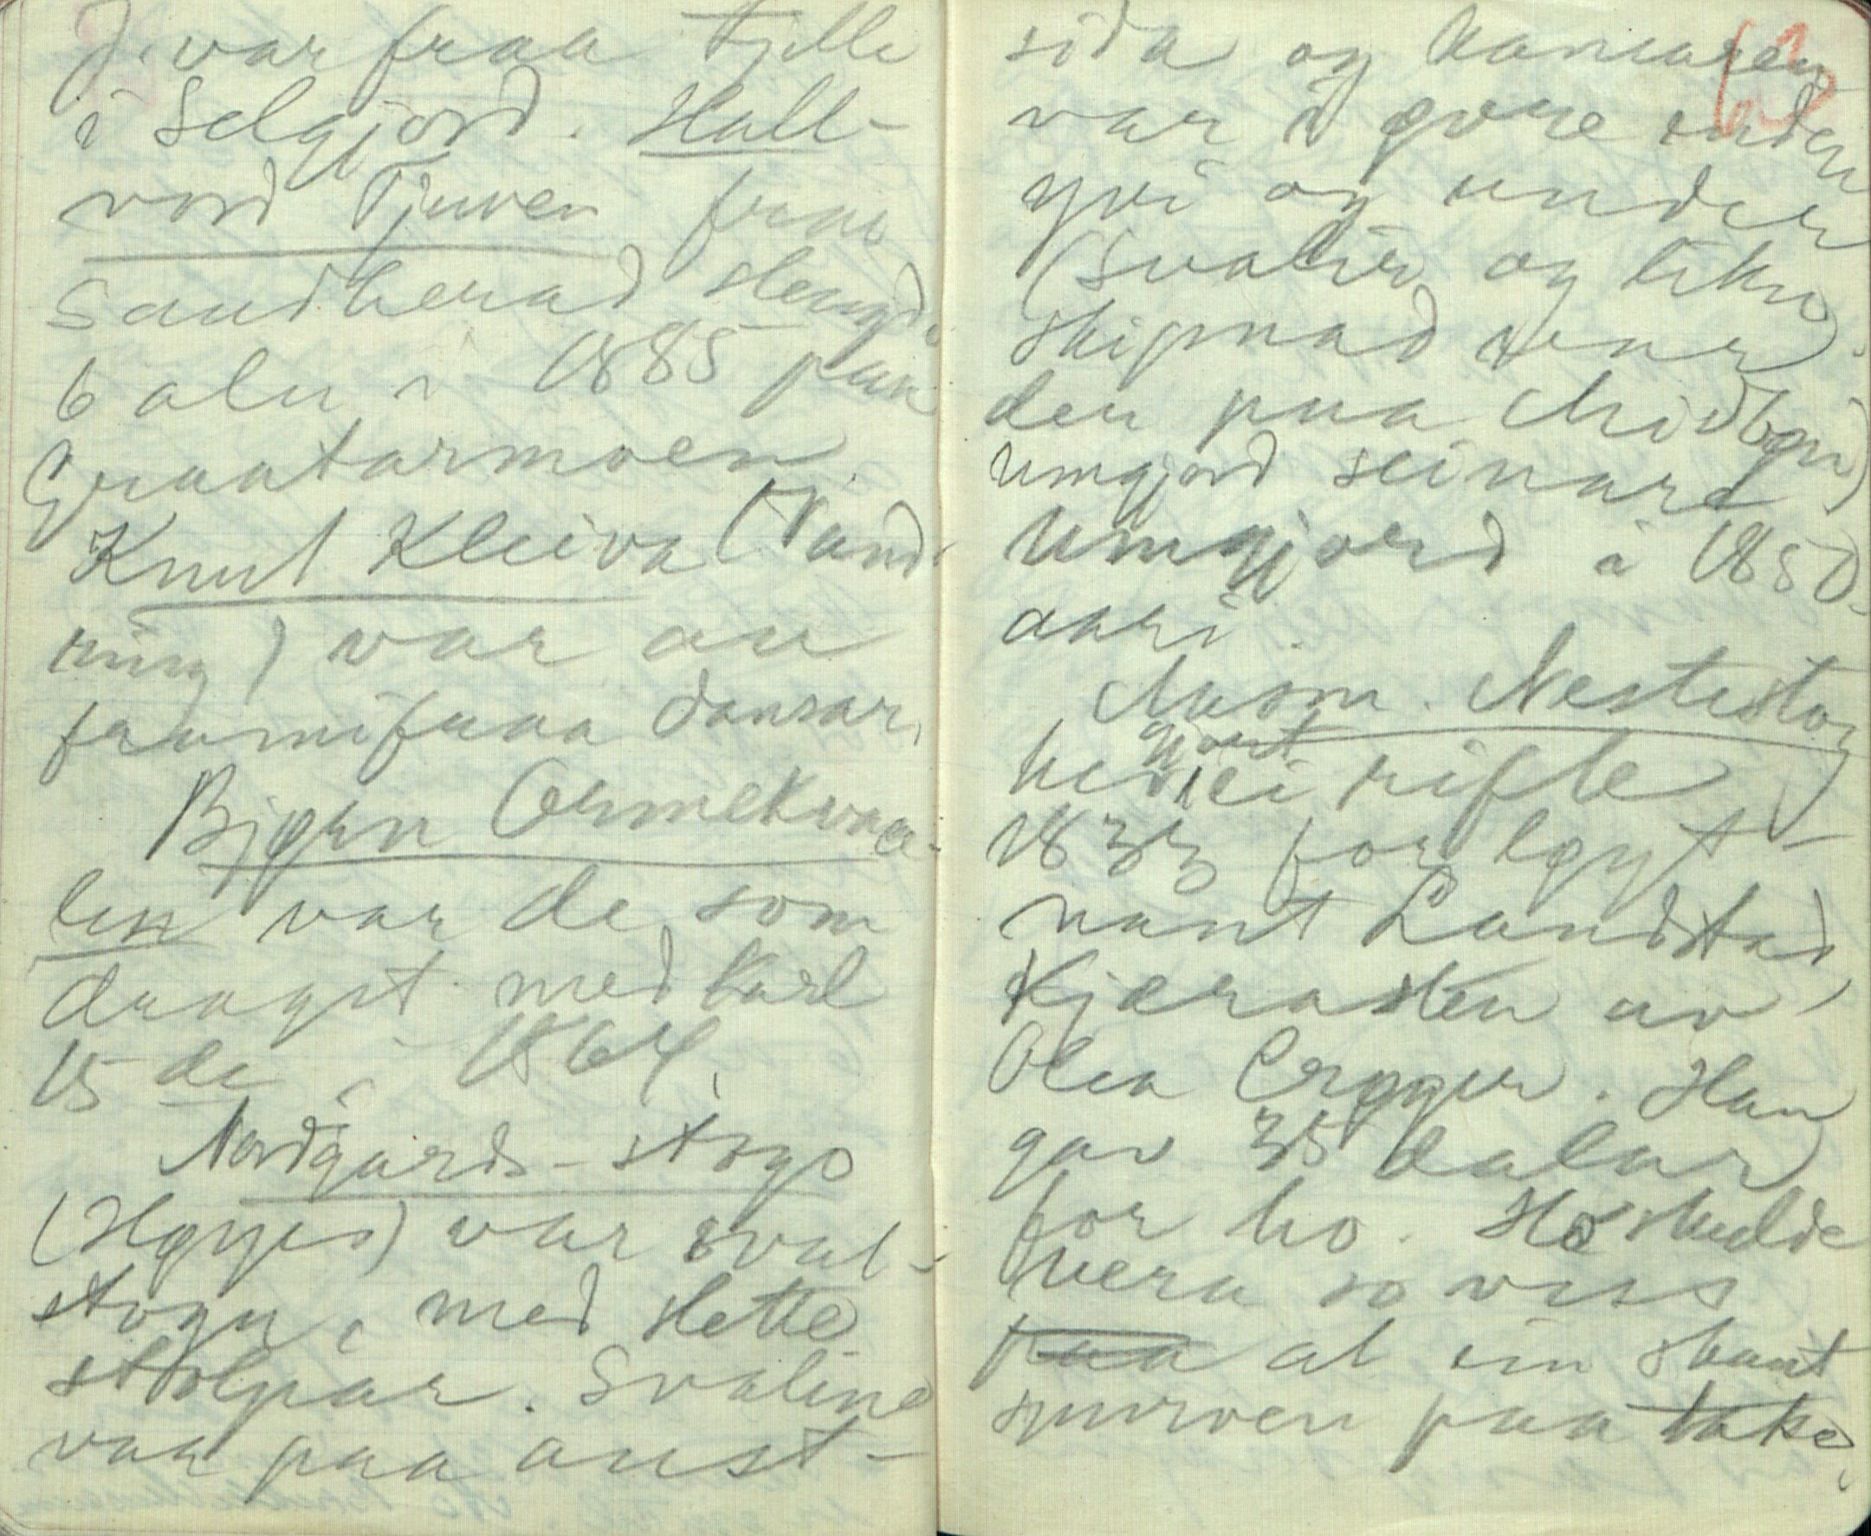 J. var fraa Fjelle
i Selgjord. Hall-
vord Tjuven fraa
Sandherad slengde
6 aln i 1885 paa
Graatarmoen.
Knut Kleiva (Rand-
ning) var au
framifraa dansar.
Bjørn Ormekvaa-
len var de som
drogst med Karl
15 de i 1864.
Nordgards-stogo
(Høyes) var sval-
stogu, med slette
stolpar. Svaline
var paa aust-
63
sida og
var i gøre enden
yvi og under
(Svalir og like
skipnad var
den paa Midbøn)
umgjord seinare
Umgjord i 1850-
aari.
Aasm. Nestestog
hev gjort ei rifle
1833 for løyt-
nant Landstad,
Kjærasten av
Olea Crøger. Han
gav 35 dalar
for ho. Ho skulde
vera so viss
paa at ein skaut
spurven paa take,